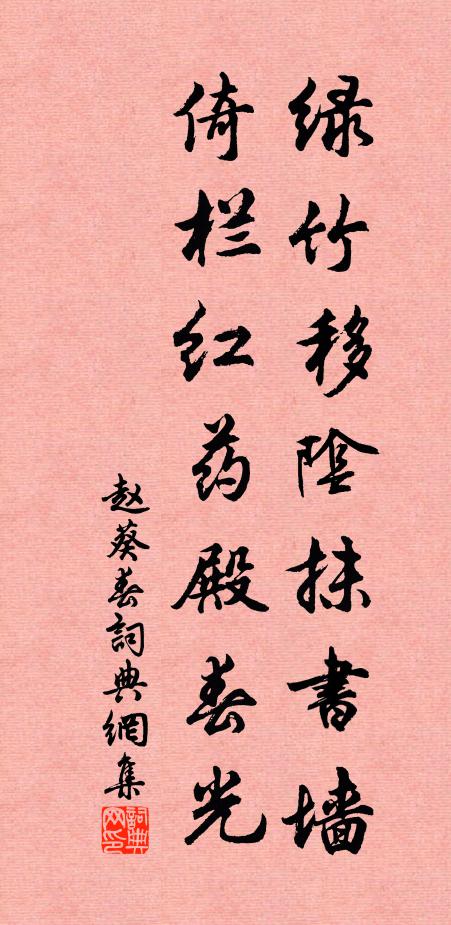 绿竹移阴抹书墙
倚栏红药殿春光
赵葵春詞典網集
詞典网印